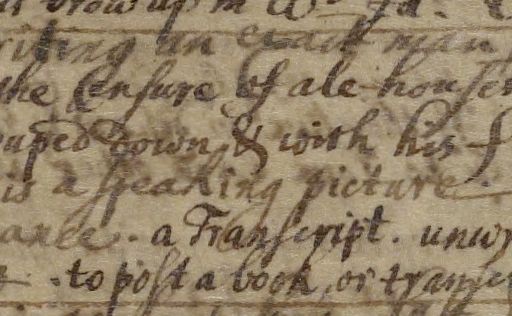 writing an exact man
the Censure of ale-houses
down & with his
is a speaking picture.
a Transcript.
to post a book, or